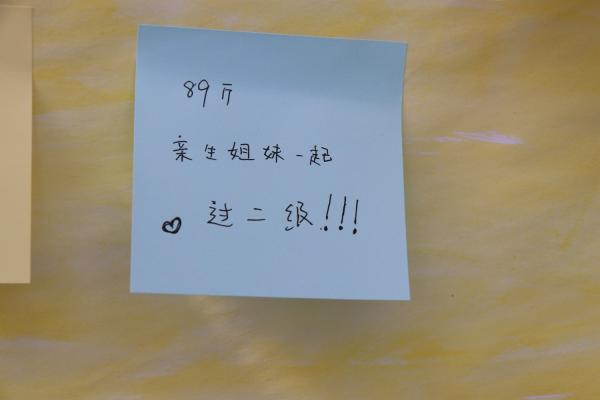 89斤
亲生姐妹一起
♡ 过二级!!!